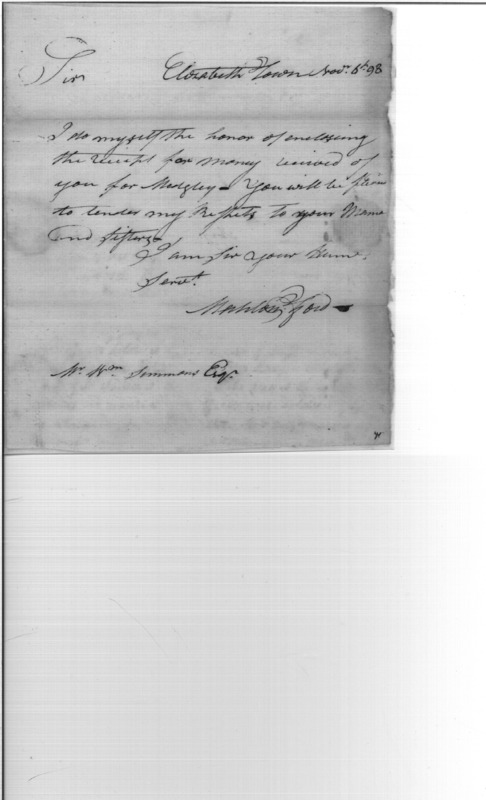 Sir Elizabeth Town Novr. 6th 98
I do myself the honor of enclosing
the receipt for money received of
you for Medgley — You will be
to tender my Respects to your Mama
and sisters —
I am Sir your Hume.
Servt.
Mahlon Ford —
Mr. Wm. Simmons Esqr.